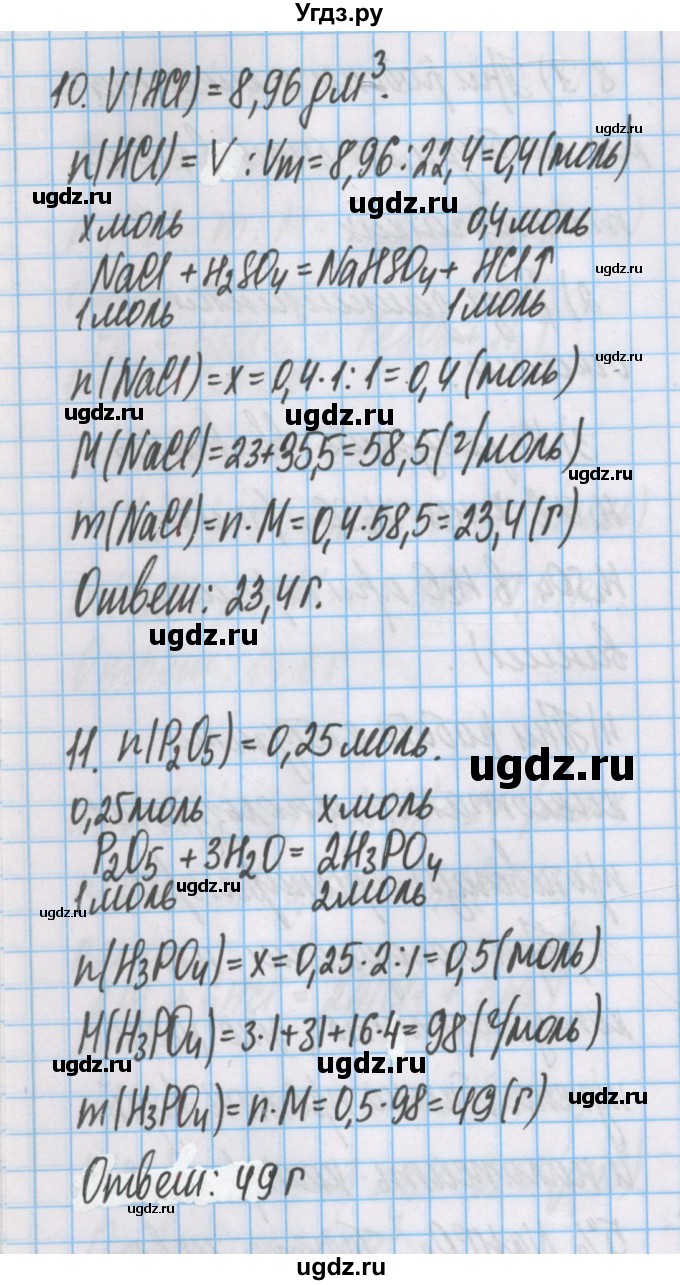 Угдз.ру
10. V(HCl) = 8,96 дм³.
n(HCl) = V : Vm = 8,96 : 22,4 = 0,4 (моль)
ugdz.ru
ugdz.ru
x моль 0,4 моль
NaCl + H₂SO₄ = NaHSO₄ + HCl↑
1 моль 1 моль
ugdz.ru
n(NaCl) = x = 0,4 · 1 : 1 = 0,4 (моль)
ugdz.ru
ugdz.ru
M(NaCl) = 23 + 35,5 = 58,5 (г/моль)
ugdz.ru
m(NaCl) = n · M = 0,4 · 58,5 = 23,4 (г)
Ответ: 23,4 г.
ugdz.ru
11. n(P₂O₅) = 0,25 моль.
ugdz.ru
0,25 моль x моль
P₂O₅ + 3H₂O = 2H₃PO₄
ugdz.ru
1 моль 2 моль
ugdz.ru
n(H₃PO₄) = x = 0,25 · 2 : 1 = 0,5 (моль)
M(H₃PO₄) = 3 · 1 + 31 + 16 · 4 = 98 (г/моль)
ugdz.ru
ugdz.ru
m(H₃PO₄) = n · M = 0,5 · 98 = 49 (г)
ugdz.ru
Ответ: 49 г
ugdz.ru
Угдз.ру